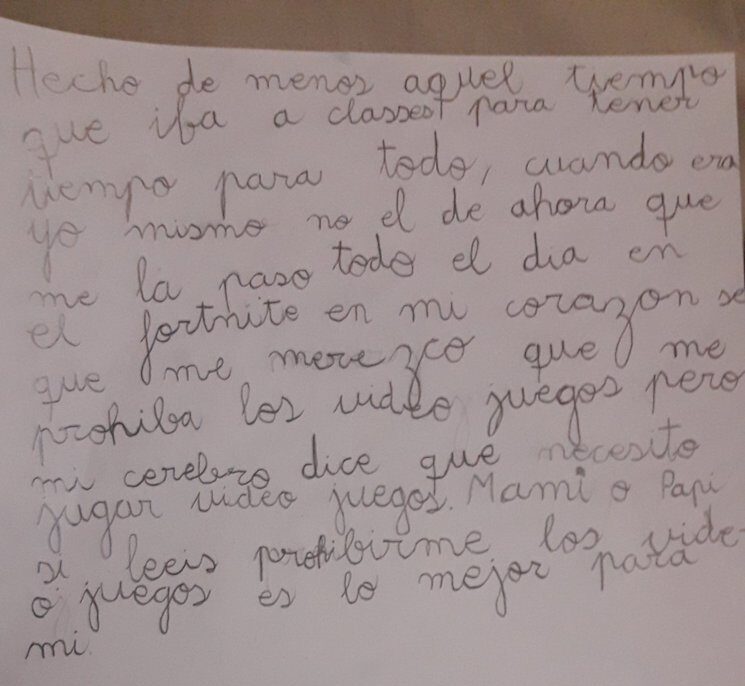 Hecho de menos aquel tiempo
que iba a classes para tener
tiempo para todo, cuando era
yo mismo no el de ahora que
me la paso todo el dia en
el fortnite en mi corazon se
que me merezco que me
prohiba los video juegos pero
mi cerebro dice que necesito
jugar video juegos. Mami o Papi
si leeis prohibirme los vide-
o juegos es lo mejor para
mi.